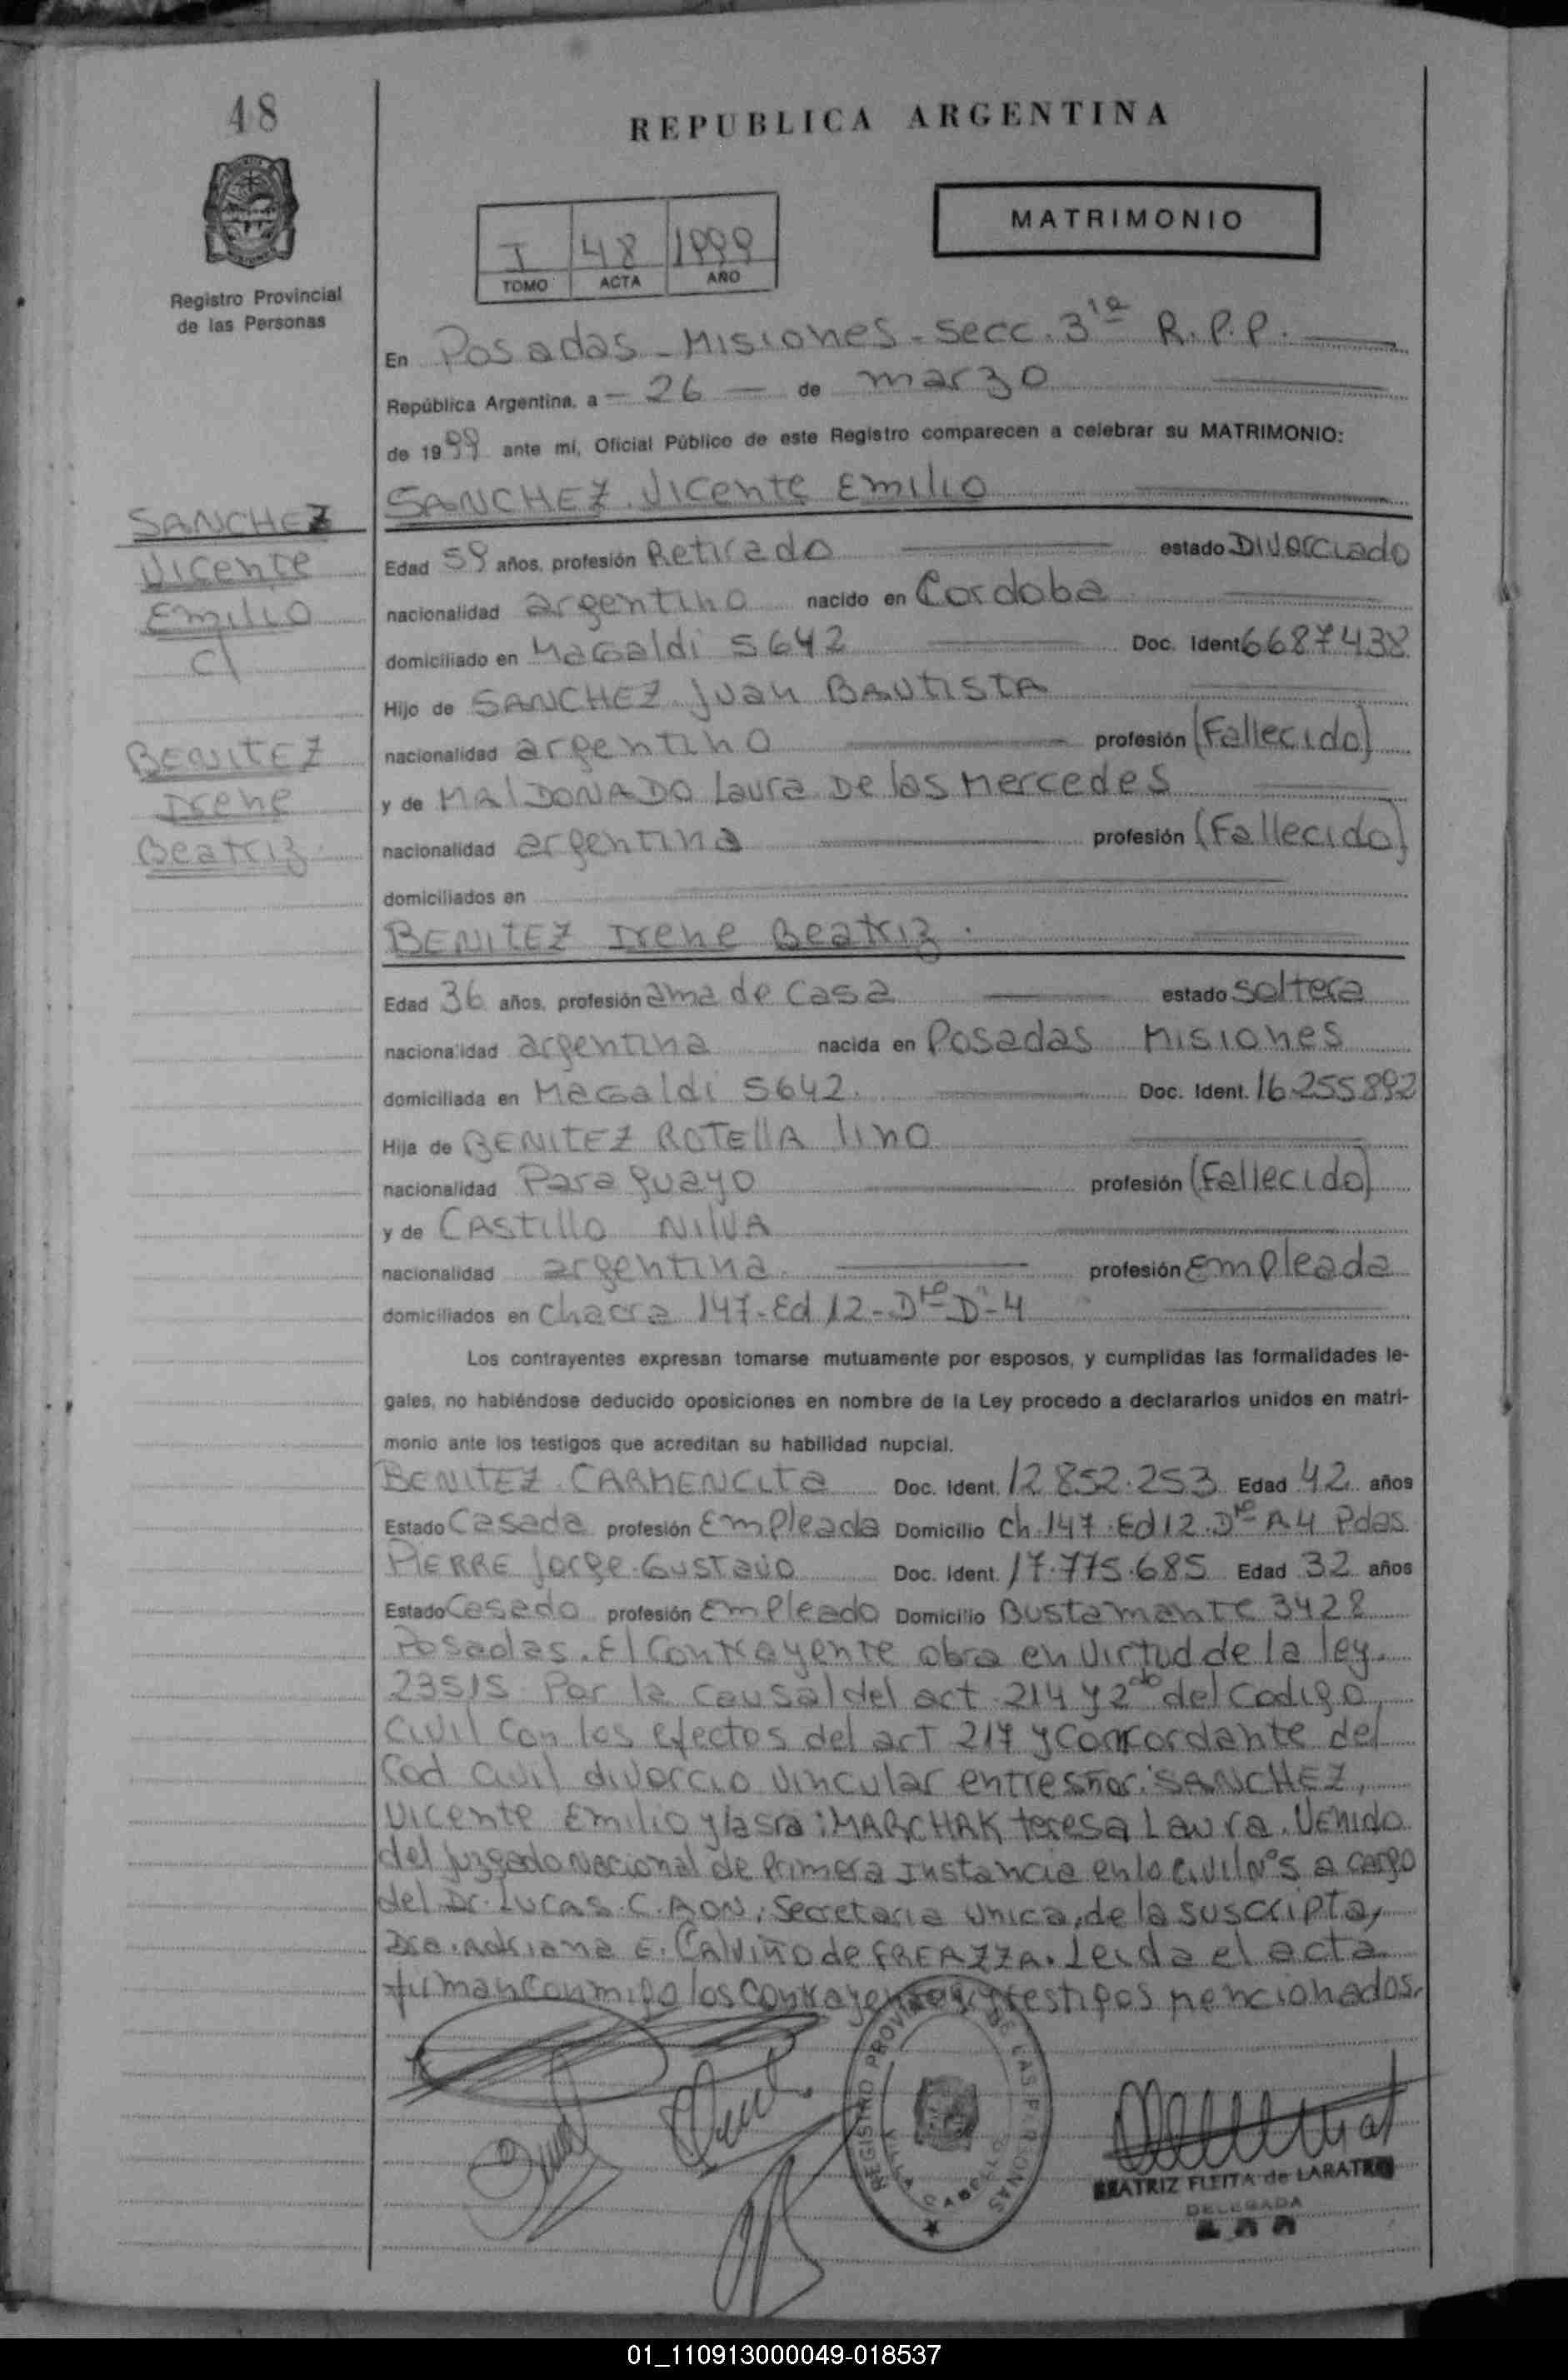 48
REPUBLICA ARGENTINA
MATRIMONIO
I 48 1999
TOMO ACTA AÑO
Registro Provincial
de las Personas
En Posadas - Misiones - secc. 3ra R.P.P.
República Argentina, a - 26 - de marzo
de 1999 ante mí, Oficial Público de este Registro comparecen a celebrar su MATRIMONIO:
SANCHEZ Vicente Emilio
SANCHEZ
Vicente
Emilio
c/
BENITEZ
Irene
Beatriz
Edad 59 años, profesión Retirado estado Divorciado
nacionalidad argentino nacido en Cordoba
domiciliado en Magaldi 5642 Doc. Ident 6687438
Hijo de SANCHEZ Juan BAUTISTA
nacionalidad argentino profesión (Fallecido)
y de MALDONADO Laura De las Mercedes
nacionalidad argentina profesión (Fallecido)
domiciliados en
BENITEZ Irene Beatriz.
Edad 36 años, profesión ama de casa estado soltera
nacionalidad argentina nacida en Posadas Misiones
domiciliada en Magaldi 5642. Doc. Ident. 16.255.892
Hija de BENITEZ ROTELLA lino
nacionalidad Paraguayo profesión (Fallecido)
y de CASTILLO NILVA
nacionalidad argentina. profesión Empleada
domiciliados en chacra 147-Ed 12-Dto D-4
Los contrayentes expresan tomarse mutuamente por esposos, y cumplidas las formalidades le-
gales, no habiéndose deducido oposiciones en nombre de la Ley procedo a declararlos unidos en matri-
monio ante los testigos que acreditan su habilidad nupcial.
BENITEZ CARMENCITA Doc. Ident. 12.852.253 Edad 42 años
Estado Casada profesión Empleada Domicilio ch.147.Ed12.Dto A4 Pdas
PIERRE Jorge Gustavo Doc. Ident. 17.775.685 Edad 32 años
Estado Casado profesión Empleado Domicilio Bustamante 3428
Posadas. El Contrayente obra en virtud de la ley.
23515 Por la causal del art. 214 y 2do del Codigo
civil con los efectos del art 217 y concordante del
Cod civil divorcio vincular entre sñor: SANCHEZ,
Vicente Emilio y la sra: MARCHAK teresa Laura. Venido
del juzgado Nacional de Primera Instancia en lo civil Nº5 a cargo
del Dr. LUCAS.C.AON, Secretaria Unica, de la suscripta,
Dra. Adriana E. CALVIÑO de FREAZZA. Leida el acta
firman conmigo los contrayentes y testigos mencionados.
REGISTRO PROVINCIAL DE LAS PERSONAS
BEATRIZ FLEITA de LARATRO
DELEGADA
01_110913000049-018537